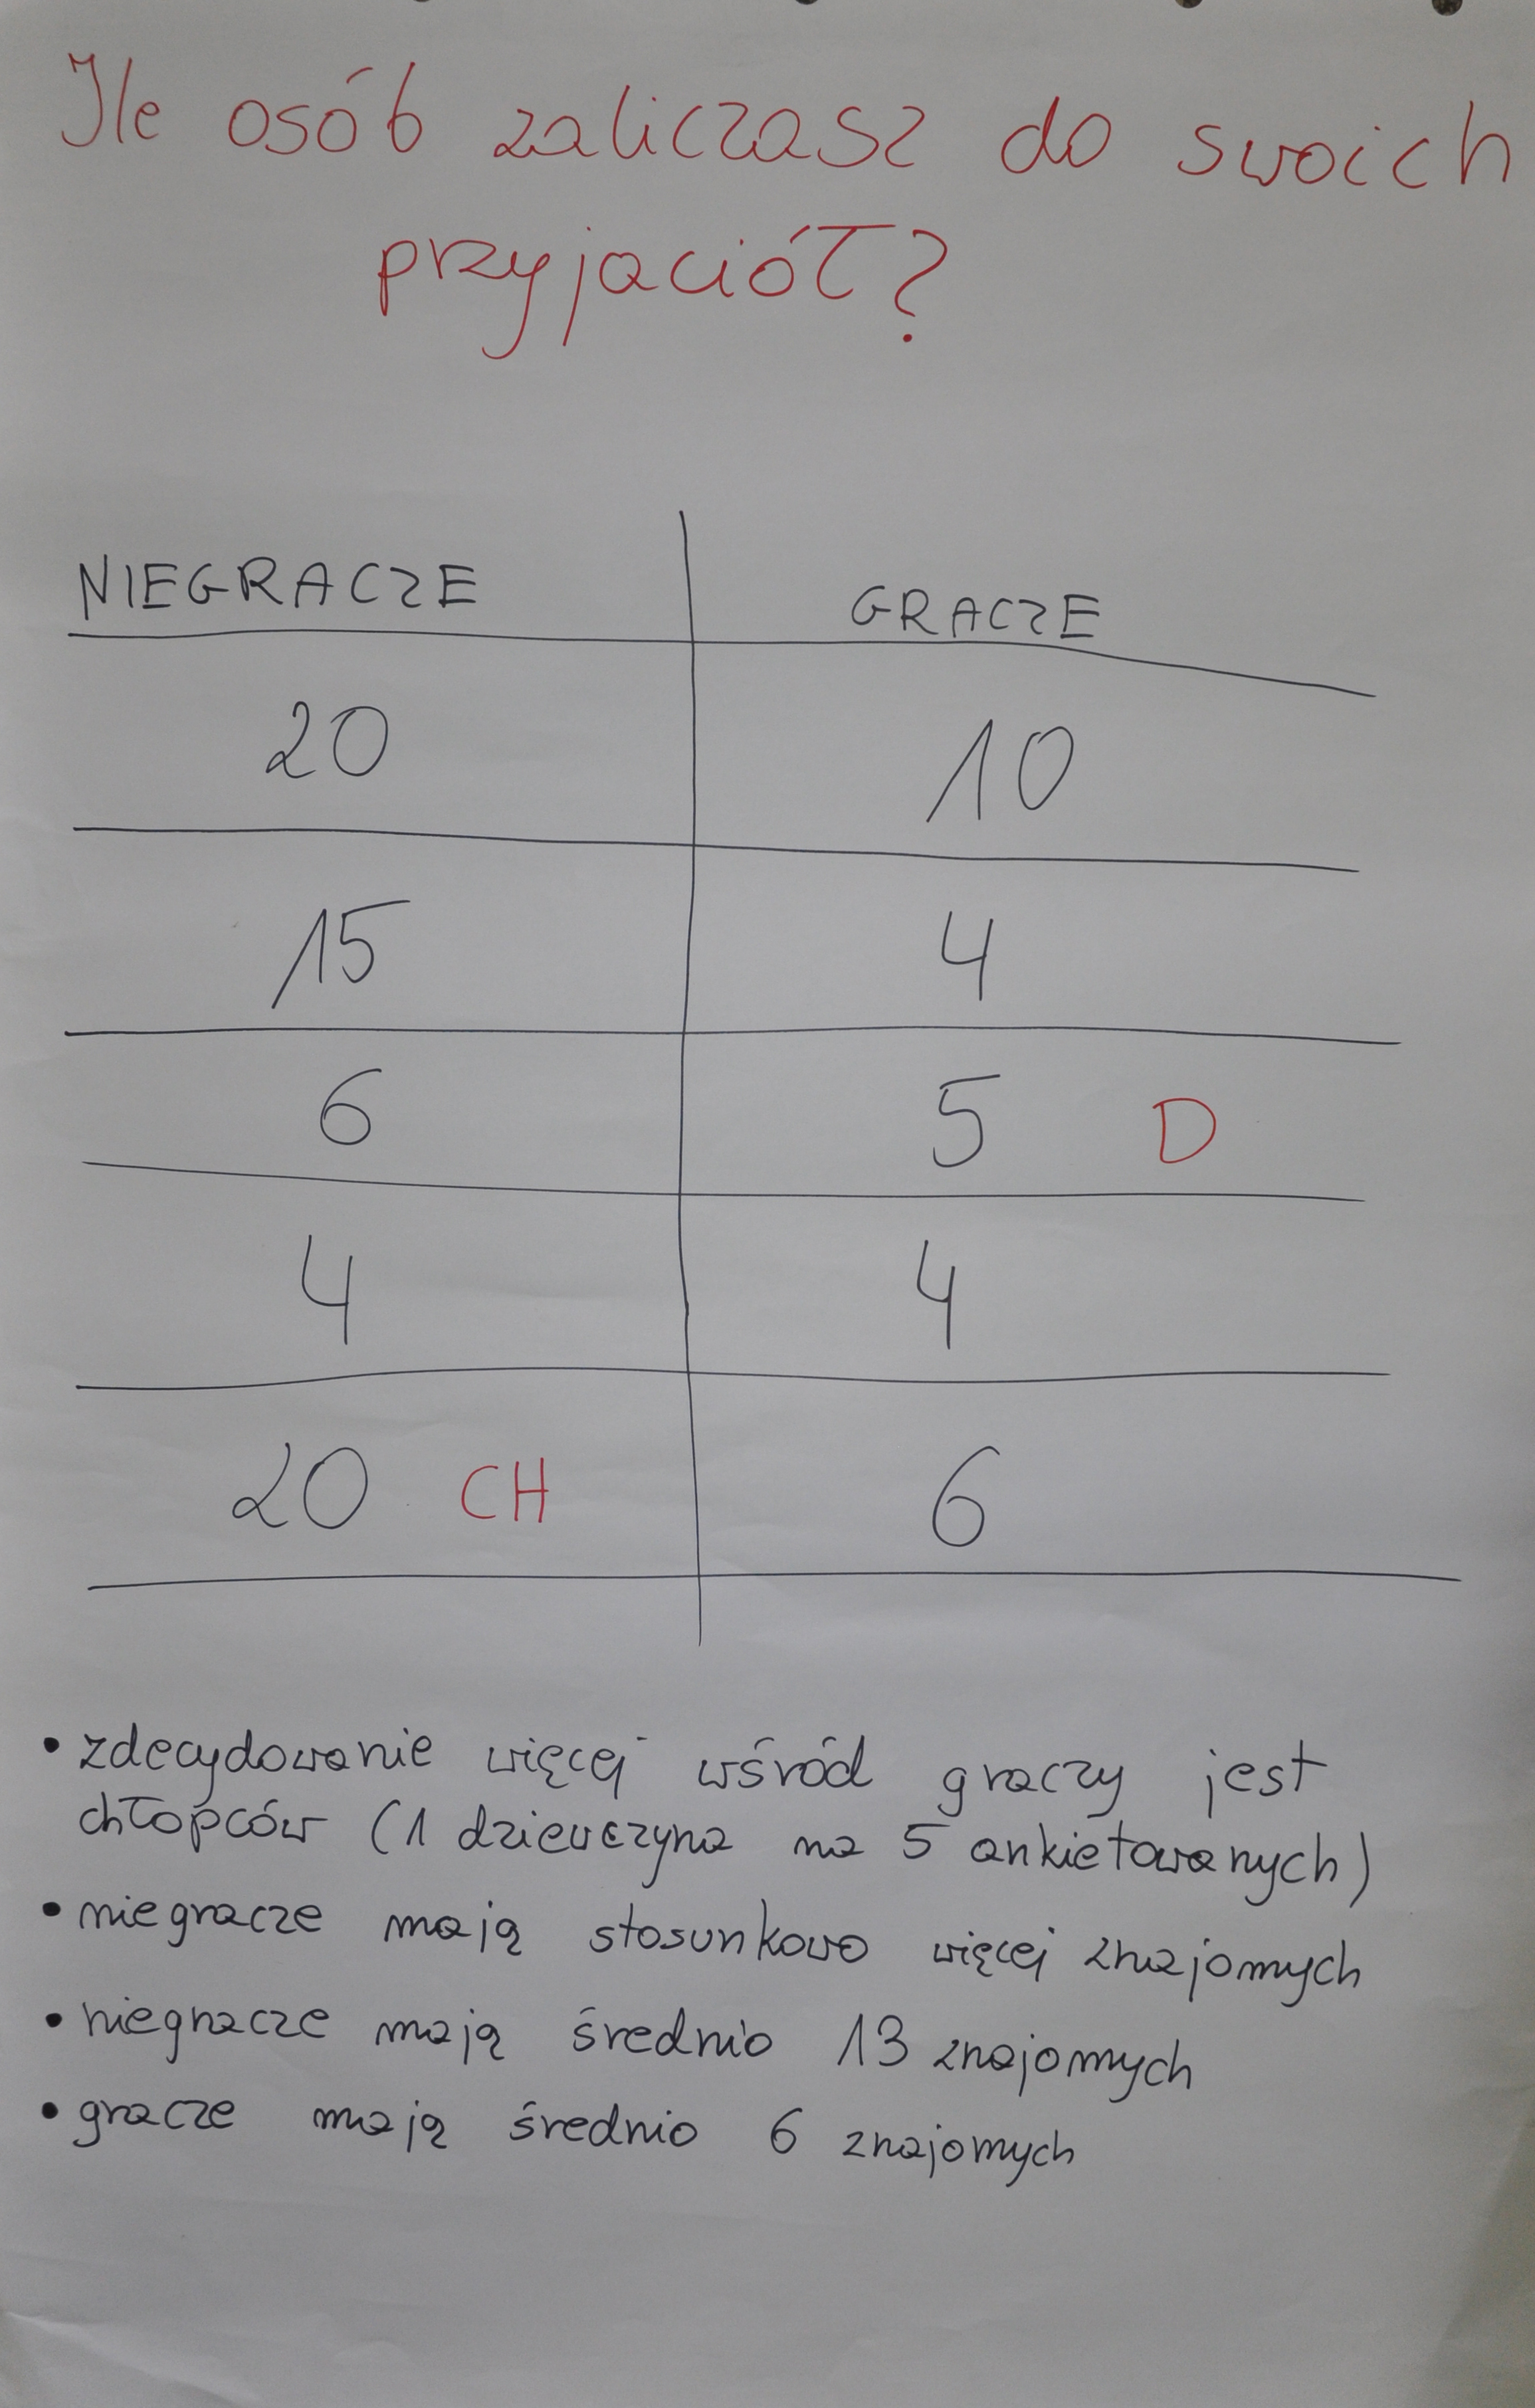 Ile osób zaliczasz do swoich
przyjaciół?
NIEGRACZE GRACZE
20 10
15 4
6 5 D
4 4
20 CH 6
• zdecydowanie więcej wśród graczy jest
chłopców (1 dziewczyna na 5 ankietowanych)
• niegracze mają stosunkowo więcej znajomych
• niegracze mają średnio 13 znajomych
• gracze mają średnio 6 znajomych